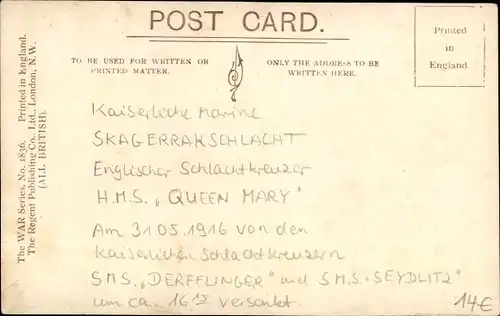 POST CARD.
TO BE USED FOR WRITTEN OR
PRINTED MATTER.
ONLY THE ADDRESS TO BE
WRITTEN HERE.
Printed
in
England
The WAR Series, No. 1836. Printed in England.
The Regent Publishing Co., Ltd., London, N.W.
(ALL BRITISH).
Kaiserliche Marine
SKAGERRAKSCHLACHT
Englischer Schlachtkreuzer
H.M.S. „QUEEN MARY"
Am 31.05.1916 von den
Kaiserlichen Schlachtkreuzern
SMS. „DERFFLINGER" und S.M.S. „SEYDLITZ"
um ca. 16 versenkt.
14€